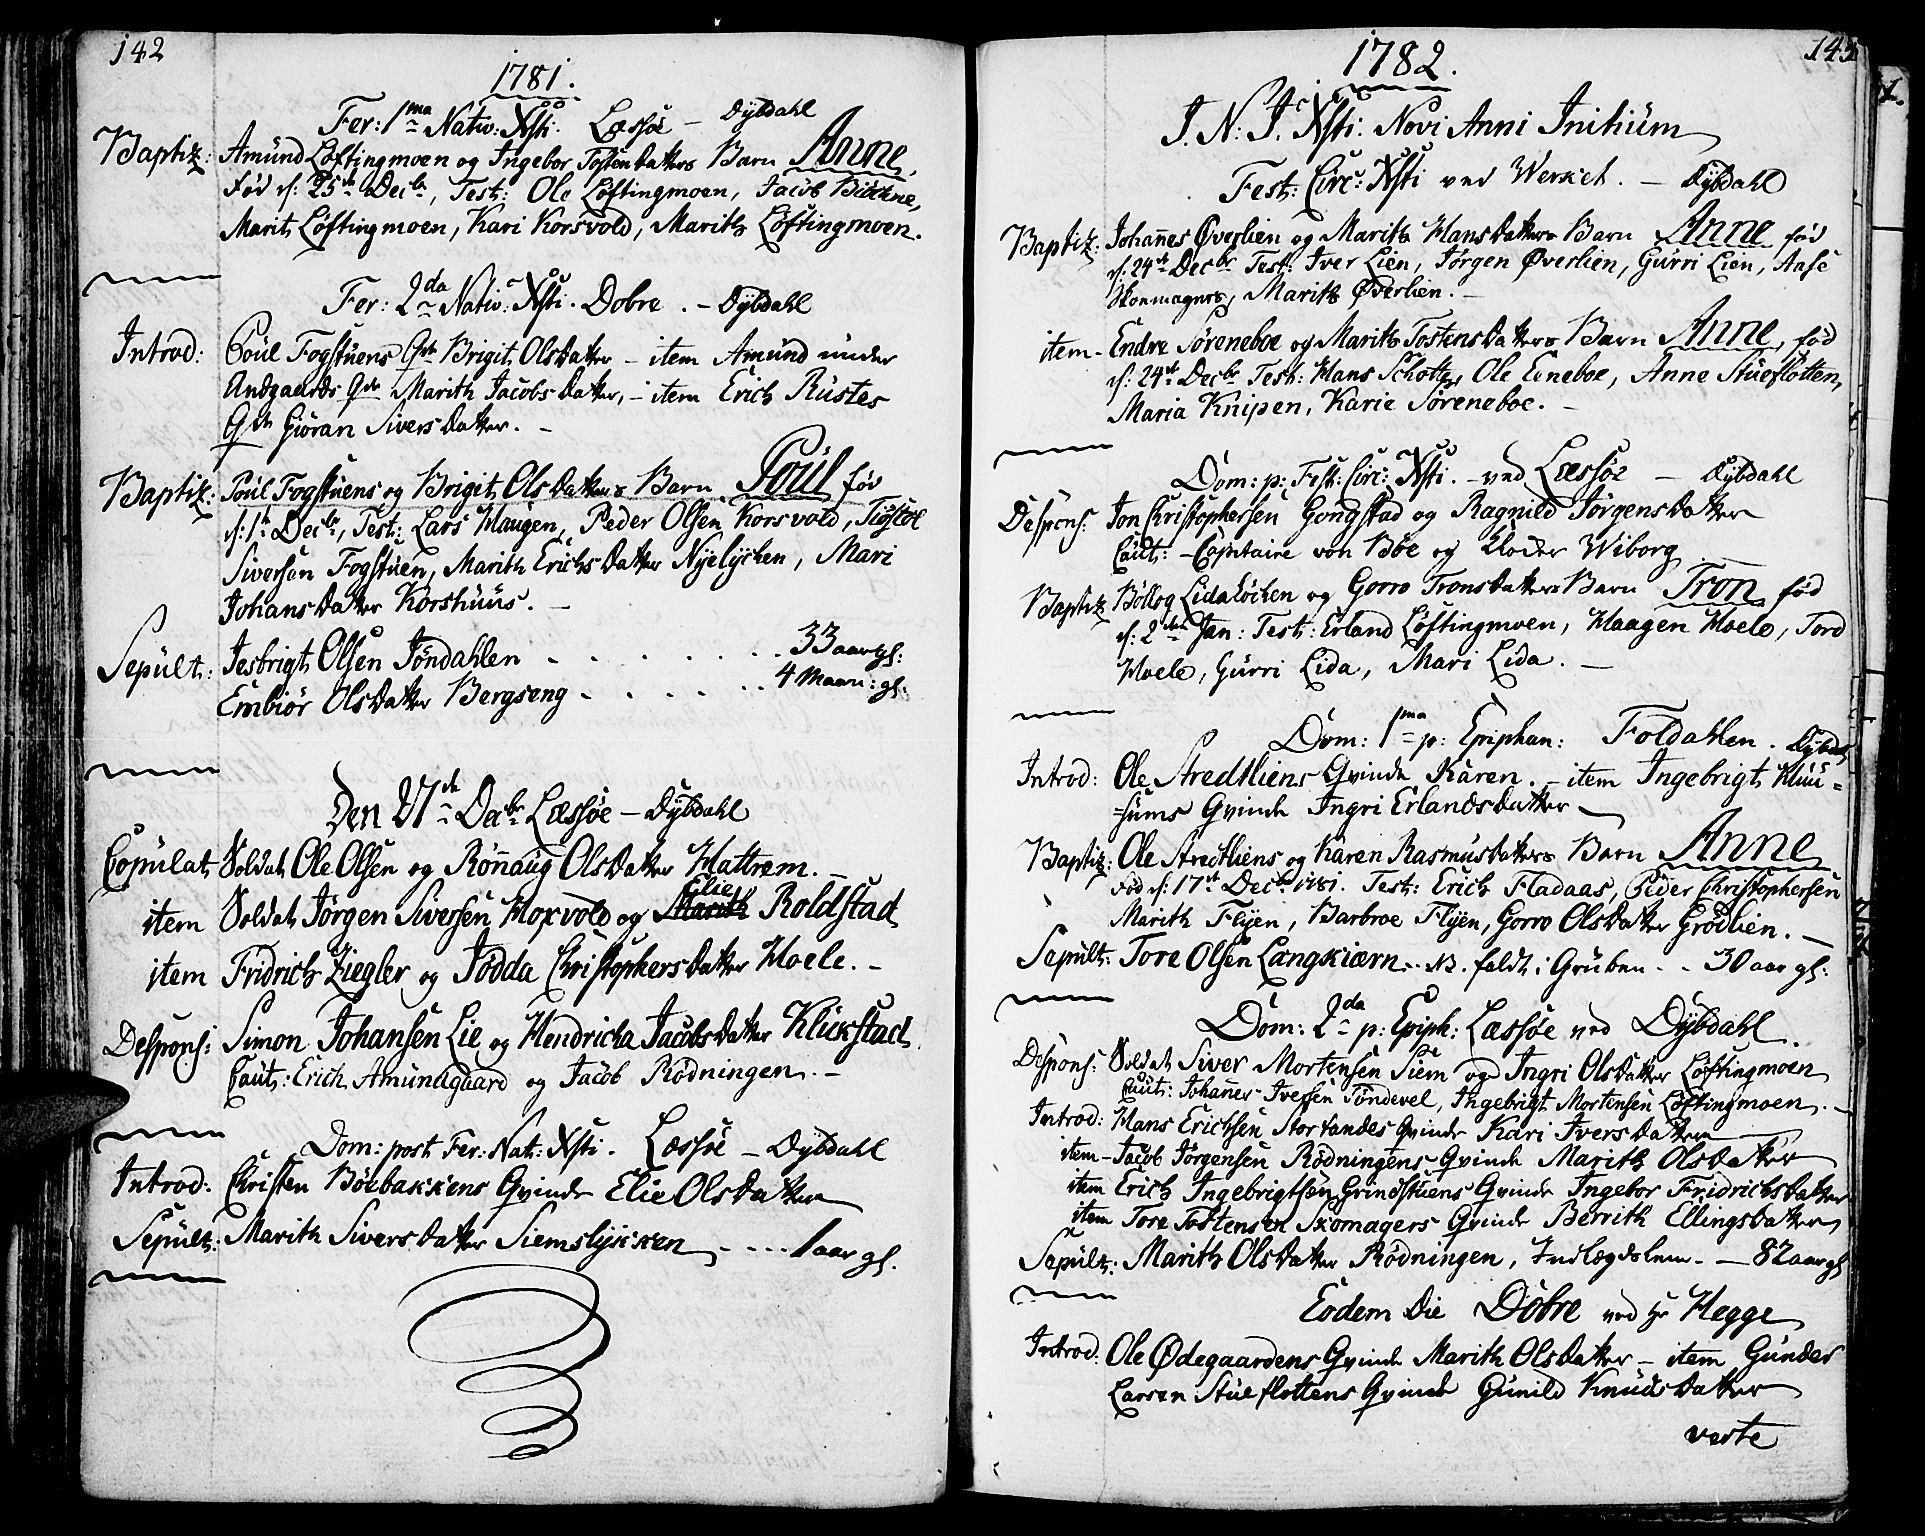 142
1781.
Fer: 1ma Nativ: Xsti. Læssøe - Dybdahl
Baptiz: Amund Løftingmoen og Ingebor Tostensdatters Barn Anne,
fød d: 25de Decbr, Test: Ole Løftingmoen, Jacob
Marit Løftingmoen, Kari Korsvold, Marith Løftingmoen.
Fer: 2da Nativ: Xsti. Dobre. - Dybdahl
Introd: Poul Fogstuens Qde Brigit Olsdatter - item Amund under
Andgaards Qde Marith Jacobsdatter, - item Erich Rustes
Qde Giøran Siversdatter. -
Baptiz: Poul Fogstuens og Brigit Olsdatters Barn Poul fød
d: 1te Decbr, Test: Lars Haugen, Peder Olsen Korsvold,
Siversen Fogstuen, Marith Erichsdatter Nyelycken, Mari
Johansdatter Korshuus. -
Sepult: Jesbrigt Olsen Jøndahlen . . . . . . . 33 aar gl:
Embiør Olsdatter Bergseng - . . . . . . 4 Maan: gl.
Den 27de Decbr Læssøe - Dybdahl
Copulat Soldat Ole Olsen og Rønnaug Olsdatter Hattrem. -
Elie
item Soldat Jørgen Siversen Hoxvold og Marith Roldstad
item Fridrich Ziegler og Jødda Christophersdatter Hoele. -
Despons: Simon Johansen Lie og Hendricha Jacobsdatter Klickstad.
Caut: Erich Amundgaard og Jacob Rødningen. -
Dom: post Fer: Nat: Xsti. Læssøe - Dybdahl
Introd: Christen Bøebakkens Qvinde Elie Olsdatter
Sepult: Marith Siversdatter Siemslykken - . . . 1 aar gl.
143
1782.
J. N. J. Xsti. Novi Anni Initium
Fest: Circ: Xsti ved Werket. - Dybdahl
Baptiz: Johannes Øverlien og Marith Hansdatters Barn Anne fød
d: 24de Decbr Test: Iver Lien, Jørgen Øverlien, Gurri Lien, Aase
Skoemagers, Marith Øverlien. -
item - Endre Søreneboe og Marith Tostensdatters Barn Anne, fød
d: 24de Decbr Test: Hans Schotte, Ole Eeneboe, Anne Stueflotten,
Maria Knipen, Karie Søreneboe. -
Dom: p: Fest: Circ: Xsti. - ved Læssøe - Dybdahl
Despons: Jon Christophersen Gongstad og Ragnild Jørgensdatter
Caut: - Capitaine von Böe og Wiborg
Baptiz Bøllog Lidaløcken og Gorro Tronsdatters Barn Tron fød
d: 2den Jan: Test: Erland Løftingmoen, Haagen Hoele, Tord
Hoele, Gurri Lida, Mari Lida. -
Dom: 1ma p: Epiphan: Foldahlen. Dybdahl
Introd: Ole Stredtliens Qvinde Karen. - item Ingebrigt Huu-
-sums Qvinde Ingri Erlandsdatter
Baptiz: Ole Stredtliens og Karen Rasmusdatters Barn Anne
fød d: 17de Decbr 1781. Test: Erich Fladaas, Peder Christophersen
Marith Flyen, Barbroe Flyen, Gorro Olsdatter Grødlien. -
Sepult: Tore Olsen Langkiærn - NB. faldt i Gruben - - 30 aar gl:
Dom: 2da p: Epiph: Læssøe ved Dybdahl.
Despons: Soldat Siver Mortensen Siem og Ingri Olsdatter Løftingmoen
Caut: Johannes Iversen Tøndevel, Ingebrigt Mortensen Løftingmoen. -
Introd: Hans Erichsen Storrandes Qvinde Kari Iversdatter
item - Jacob Jørgensen Rødningens Qvinde Marith Olsdatter
item Erich Ingebrigtsen Grindstuens Qvinde Ingebor Fridrichsdatter
item Tore Tostensen Skomagers Qvinde Berrith Ellingsdatter
Sepult: Marith Olsdatter Rødningen, Indlægdslem - - 82 aar gl
Eodem Die Dobre ved Hr Hegge
Introd: Ole Ødegaardens Qvinde Marith Olsdatter - item Gunder
Larsen Stueflottens Qvinde Gunild Knudsdatter
verte